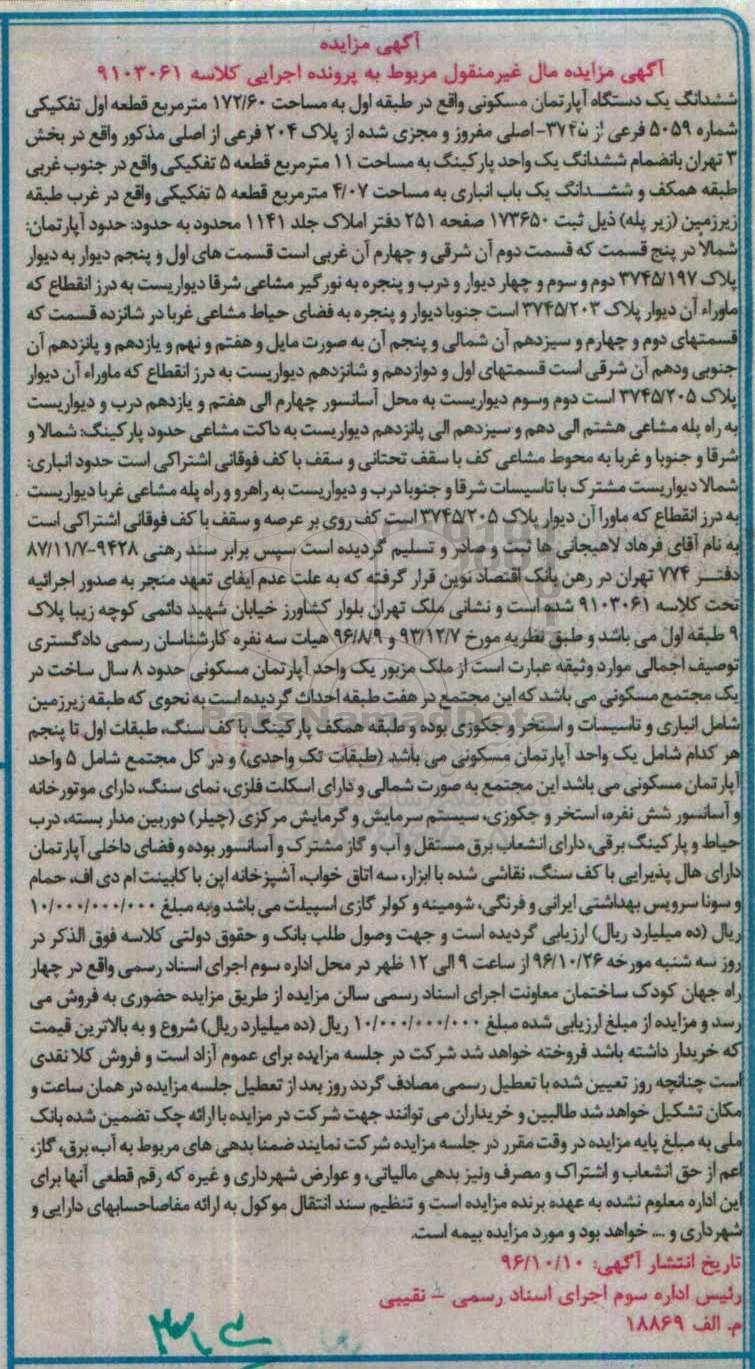 آگهی مزایده
آگهی مزایده مال غیرمنقول مربوط به پرونده اجرایی کلاسه ۹۱۰۳۰۶۱
ششدانگ یک دستگاه آپارتمان مسکونی واقع در طبقه اول به مساحت ۱۷۲/۶۰ مترمربع قطعه اول تفکیکی
شماره ۵۰۵۹ فرعی از ۳۷۴۵-اصلی مفروز و مجزی شده از پلاک ۲۰۴ فرعی از اصلی مذکور واقع در بخش
۳ تهران بانضمام ششدانگ یک واحد پارکینگ به مساحت ۱۱ مترمربع قطعه ۵ تفکیکی واقع در جنوب غربی
طبقه همکف و ششدانگ یک باب انباری به مساحت ۴/۰۷ مترمربع قطعه ۵ تفکیکی واقع در غرب طبقه
زیرزمین (زیر پله) ذیل ثبت ۱۷۳۶۵۰ صفحه ۲۵۱ دفتر املاک جلد ۱۱۴۱ محدود به حدود: حدود آپارتمان:
شمالا در پنج قسمت که قسمت دوم آن شرقی و چهارم آن غربی است قسمت های اول و پنجم دیوار به دیوار
پلاک ۳۷۴۵/۱۹۷ دوم و سوم و چهار دیوار و درب و پنجره به نورگیر مشاعی شرقا دیواریست به درز انقطاع که
ماوراء آن دیوار پلاک ۳۷۴۵/۲۰۳ است جنوبا دیوار و پنجره به فضای حیاط مشاعی غربا در شانزده قسمت که
قسمتهای دوم و چهارم و سیزدهم آن شمالی و پنجم آن به صورت مایل و هفتم و نهم و یازدهم و پانزدهم آن
جنوبی ودهم آن شرقی است قسمتهای اول و دوازدهم و شانزدهم دیواریست به درز انقطاع که ماوراء آن دیوار
پلاک ۳۷۴۵/۲۰۵ است دوم وسوم دیواریست به محل آسانسور چهارم الی هفتم و یازدهم درب و دیواریست
به راه پله مشاعی هشتم الی دهم و سیزدهم الی پانزدهم دیواریست به داکت مشاعی حدود پارکینگ: شمالا و
شرقا و جنوبا و غربا به محوط مشاعی کف با سقف تحتانی و سقف با کف فوقانی اشتراکی است حدود انباری:
شمالا دیواریست مشترک با تاسیسات شرقا و جنوبا درب و دیواریست به راهرو و راه پله مشاعی غربا دیواریست
به درز انقطاع که ماورا آن دیوار پلاک ۳۷۴۵/۲۰۵ است کف روی بر عرصه و سقف با کف فوقانی اشتراکی است
به نام آقای فرهاد لاهیجانی ها ثبت و صادر و تسلیم گردیده است سپس برابر سند رهنی ۹۴۲۸-۸۷/۱۱/۷
دفتر ۷۷۴ تهران در رهن بانک اقتصاد نوین قرار گرفته که به علت عدم ایفای تعهد منجر به صدور اجرائیه
تحت کلاسه ۹۱۰۳۰۶۱ شده است و نشانی ملک تهران بلوار کشاورز خیابان شهید دائمی کوچه زیبا پلاک
۹ طبقه اول می باشد و طبق نظریه مورخ ۹۳/۱۲/۷ و ۹۶/۸/۹ هیات سه نفره کارشناسان رسمی دادگستری
توصیف اجمالی موارد وثیقه عبارت است از ملک مزبور یک واحد آپارتمان مسکونی حدود ۸ سال ساخت در
یک مجتمع مسکونی می باشد که این مجتمع در هفت طبقه احداث گردیده است به نحوی که طبقه زیرزمین
شامل انباری و تاسیسات و استخر و جکوزی بوده و طبقه همکف پارکینگ با کف سنگ، طبقات اول تا پنجم
هر کدام شامل یک واحد آپارتمان مسکونی می باشد (طبقات تک واحدی) و در کل مجتمع شامل ۵ واحد
آپارتمان مسکونی می باشد این مجتمع به صورت شمالی و دارای اسکلت فلزی، نمای سنگ، دارای موتورخانه
و آسانسور شش نفره، استخر و جکوزی، سیستم سرمایش و گرمایش مرکزی (چیلر) دوربین مدار بسته، درب
حیاط و پارکینگ برقی، دارای انشعاب برق مستقل و آب و گاز مشترک و آسانسور بوده و فضای داخلی آپارتمان
دارای هال پذیرایی با کف سنگ، نقاشی شده با ابزار، سه اتاق خواب، آشپزخانه اپن با کابینت ام دی اف، حمام
و سونا سرویس بهداشتی ایرانی و فرنگی، شومینه و کولر گازی اسپیلت می باشد و به مبلغ ۱۰/۰۰۰/۰۰۰/۰۰۰
ریال (ده میلیارد ریال) ارزیابی گردیده است و جهت وصول طلب بانک و حقوق دولتی کلاسه فوق الذکر در
روز سه شنبه مورخه ۹۶/۱۰/۲۶ از ساعت ۹ الی ۱۲ ظهر در محل اداره سوم اجرای اسناد رسمی واقع در چهار
راه جهان کودک ساختمان معاونت اجرای اسناد رسمی سالن مزایده از طریق مزایده حضوری به فروش می
رسد و مزایده از مبلغ ارزیابی شده مبلغ ۱۰/۰۰۰/۰۰۰/۰۰۰ ریال (ده میلیارد ریال) شروع و به بالاترین قیمت
که خریدار داشته باشد فروخته خواهد شد شرکت در جلسه مزایده برای عموم آزاد است و فروش کلا نقدی
است چنانچه روز تعیین شده با تعطیل رسمی مصادف گردد روز بعد از تعطیل جلسه مزایده در همان ساعت و
مکان تشکیل خواهد شد طالبین و خریداران می توانند جهت شرکت در مزایده با ارائه چک تضمین شده بانک
ملی به مبلغ پایه مزایده در وقت مقرر در جلسه مزایده شرکت نمایند ضمنا بدهی های مربوط به آب، برق، گاز،
اعم از حق انشعاب و اشتراک و مصرف ونیز بدهی مالیاتی، و عوارض شهرداری و غیره که رقم قطعی آنها برای
این اداره معلوم نشده به عهده برنده مزایده است و تنظیم سند انتقال موکول به ارائه مفاصاحسابهای دارایی و
شهرداری و ... خواهد بود و مورد مزایده بیمه است.
تاریخ انتشار آگهی: ۹۶/۱۰/۱۰
رئیس اداره سوم اجرای اسناد رسمی - نقیبی
م. الف ۱۸۸۶۹